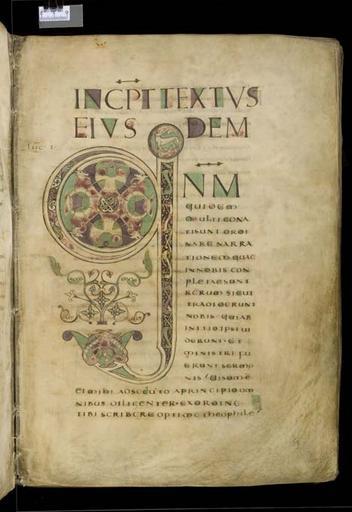 INCPT TEXTVS
EIVS DEM
Luc 1
QNM
QUIDEM
MULTI CONA
TI SUNT ORDI
NARE NARRA
TIONEM QUAE
IN NOBIS CON
PLETAE SUNT
RERUM SICUT
TRADIDERUNT
NOBIS QUI AB
INITIO IPSI UI
DERUNT ET
MINISTRI FU
ERUNT SERMO
NIS UISUM E
ET MIHI ADSECUTO A PRINCIPIO OM
NIBUS DILIGENTER EX ORDINE
TIBI SCRIBERE OPTIME THEOPHILE